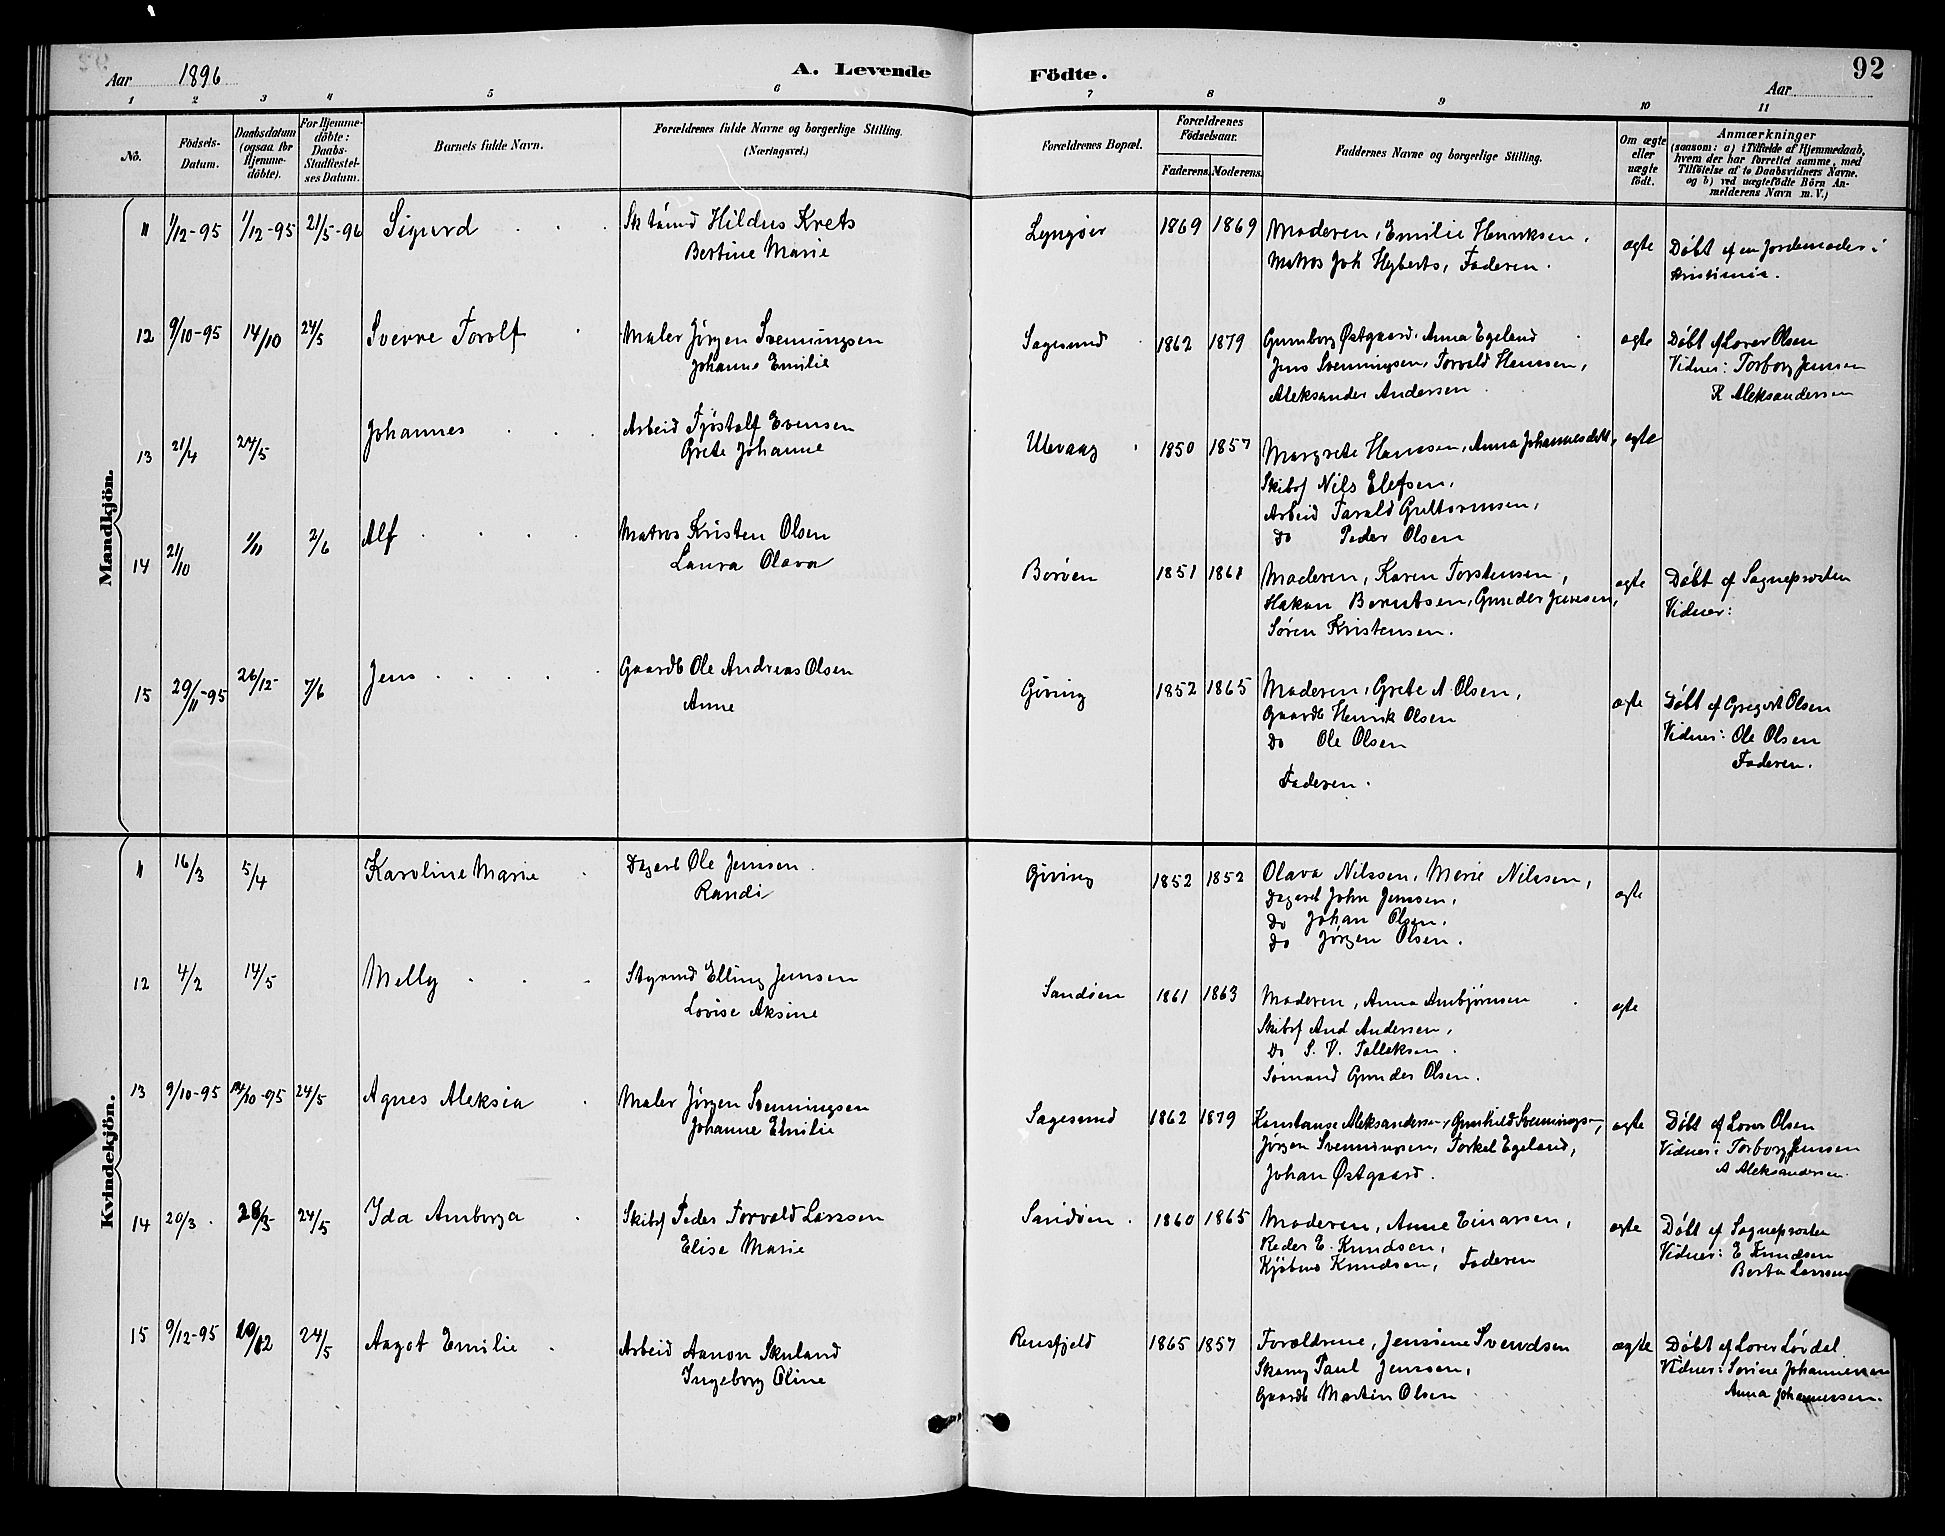 92
Aar 1896 A. Levende Födte. Aar
1 2 3 4 5 6 7 8 9 10 11
No.
Födsels-Datum.
Daabsdatum (ogsaa for Hjemme-döbte).
For Hjemme-döbte: Daabs-Stadfæstel-ses Datum.
Barnets fulde Navn.
Forældrenes fulde Navne og borgerlige Stilling.
(Næringsvei.)
Forældrenes Bopæl.
Forældrenes Födselsaar.
Faderens. Moderens.
Faddernes Navne og borgerlige Stilling.
Om ægte eller uægte födt.
Anmærkninger
(saasom: a) i Tilfælde af Hjemmedaab,
hvem der har forrettet samme, med
Tilföielse af to Daabsvidners Navne.
og b) ved uægtefödte Börn An-
melderens Navn m. V.)
Mandkjön.
11 1/12-95 1/12-95 21/5-96 Sigurd
Sktømd Hildus Krets
Bertine Marie
Lyngøer 1869 1869
Moderen, Emilie Henriksen,
Matros Joh Hyberts, Faderen.
ægte
Døbt af en Jordemoder i
Kristiania.
12 9/10-95 14/10 24/5 Sverre Torolf
Maler Jörgen Svenningsen
Johanne Emilie
Sagesund 1862 1879
Gunnborg Østgaard, Anna Egeland
Jens Svenningsen, Torvald Hanssen,
Aleksander Andersen
ægte
Døbt af Lærer Olsen
Vidner: Torborg Jenssen
K Aleksandersen
13 21/4 24/5 Johannes
Arbeid Tjöstolf Evensen
Grete Johanne
Ulevaag 1850 1857
Margrete Hanssen, Anna Johannesdatt,
Skibsf Nils Elefsen,
Arbeid Tarald Guttormsen,
Do Peder Olsen
ægte
14 21/10 1/11 2/6 Alf
Matros Kristen Olsen
Laura Olava
Borøen 1851 1861
Moderen, Karen Torstensen,
Hakon Berntsen, Gunder Jensen,
Søren Kristensen.
ægte
Døbt af Sogneprosten
Vidner:
15 29/11-95 26/12- 7/6 Jens
Gaardb Ole Andreas Olsen
Anne
Gjering 1852 1865
Moderen, Grete A. Olsen,
Gaardb Henrik Olsen
Do Ole Olsen
Faderen.
ægte
Døbt af Gregert Olsen
Vidner: Ole Olsen
Faderen.
Kvindekjön.
11 16/3 5/4 Karoline Marie
Dagarb Ole Jensen.
Randi
Gjering 1852 1852
Olava Nilssen, Marie Nilssen,
Dagarb John Jenssen,
Do Johan Olsen,
Do Jørgen Olsen.
ægte
12 4/2 14/5 Melly
Styrmd Elling Jensen
Lovise Aksine
Sandøen 1861 1863
Moderen, Anna Arnbjørnsen
Skibsf And Andersen,
Do S. V. Talleksen.
Sømand Gunder Olsen.
ægte
13 9/10-95 14/10-95 24/5 Agnes Aleksia
Maler Jörgen Svenningsen
Johanne Emilie
Sagesund 1862 1879
Konstanse Aleksandersen, Gunhild Svennings-,
Jørgen Svenningsen, Torkel Egeland,
Johan Østgaard.
ægte
Døbt af Lærer Olsen
Vidner: Torborg Jenssen
A Aleksandersen.
14 20/3. 28/3 24/5 Ida Amborga
Skibsf Peder Torvald Larssen
Elise Marie
Sandøen. 1860 1865
Moderen, Anne Einarsen,
Reder E. Knudsen,
Kjøbmd Knudsen, Faderen
ægte
Døbt af Sogneprosten
Vidner: E Knudsen
Berta Larssen
15 9/12-95 20/12 24/5 Aagot Emilie
Arbeid Aanon Skuland
Ingeborg Oline
Rensfjeld 1865 1857
Forældrene, Jensine Svendsen
Skomg Paul Jenssen,
Gaardb Martin Olsen
ægte
Døbt af Lærer Løvdal.
Vidner: Sørine Johannessen
Anna Johannessen.